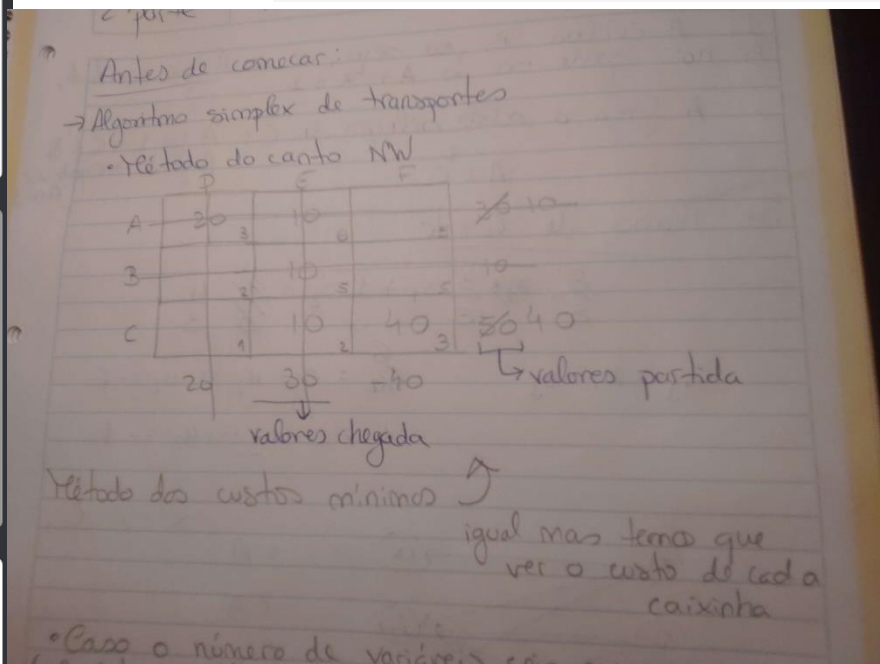 2ª parte
Antes de comecar:
→ Algoritmo simplex de transportes
• Método do canto NW
D E F
A 20 3 10 6 30 10
B 2 10 5 5 10
C 1 10 2 40 3 50 40
20 30 40 ↳ valores partida
valores chegada
Método dos custos mínimos
igual mas temos que
ver o custo de cada
caixinha
• Caso o número de variáveis